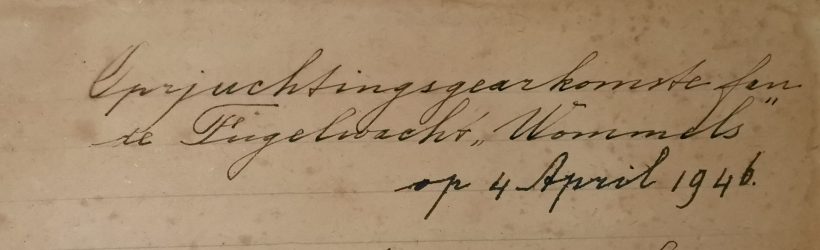 Oprjuchtingsgearkomste fan
de Fûgelwacht „Wommels”
op 4 April 1946.